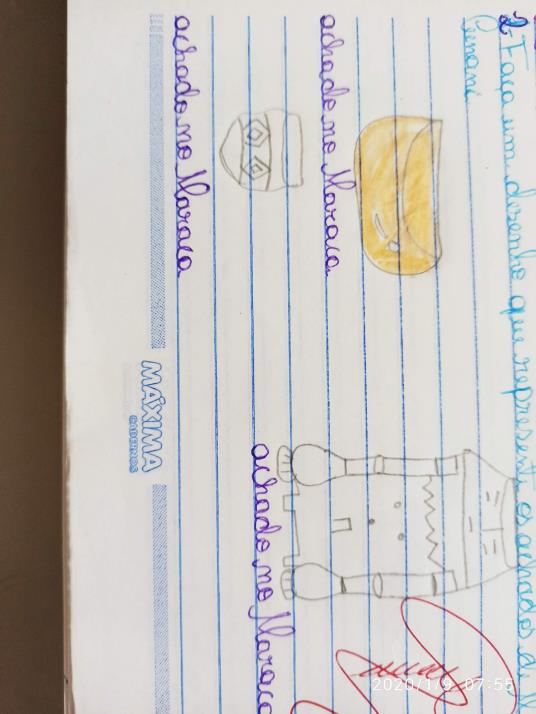 2- Faça um desenho que represente os achados d
achado no Maraca
achado no Maraca
achado no Maraca
MÁXIMA
CADERNOS
2020/1/9 07:55